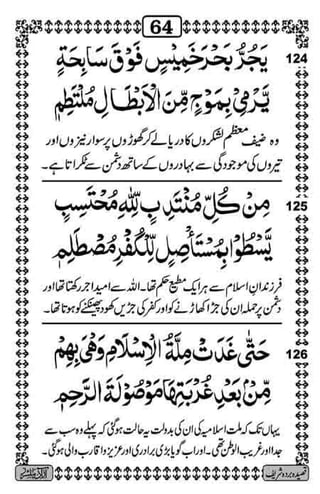 64
124
يَجُرُّ بَحْرَ خَمِيْسٍ فَوْقَ سَابِحَةٍ
يَّرْمِيْ بِمَوْجٍ مِّنَ الْاَبْطَالِ مُلْتَطِمٖ
وہ ضیف معظم لشکروں کا دریا لے کر گھوڑوں پر سوار نیزوں اور
تیروں کی موجودگی سے بہادروں کے ساتھ دشمن سے ٹکراتا ہے۔
125
مِنْ كُلِّ مُنْتَدِبٍ لِلّٰهِ مُحْتَسِبٍ
يَّسْطُوْا بِمُسْتَأْصِلٍ لِّلْكُفْرِ مُصْطَلِمٖ
فرزندان اسلام سے ہر ایک مطیع حکم تھا۔ اللہ سے امید اجر رکھتا اور
دشمن پر حملہ ان کی جڑ اکھاڑنے کو اور کفر کی جڑیں کھود پھینکنے کو ہوتا تھا۔
126
حَتّٰى غَدَتْ مِلَّةُ الْاِسْلَامِ وَهْيَ بِهِمْ
مِّنْ بَعْدِ غُرْبَتِهَا مَوْصُوْلَةَ الرَّحِمٖ
یہاں تک کہ ملت اسلامیہ کی ان کی بدولت یہ حالت ہو گئی کہ پہلے وہ سب سے
جدا اور غریب الوطن تھی۔ اور اب گویا بڑی برادری اور عزیز و اقارب والی ہو گئی۔
قصیدہ بردہ شریف